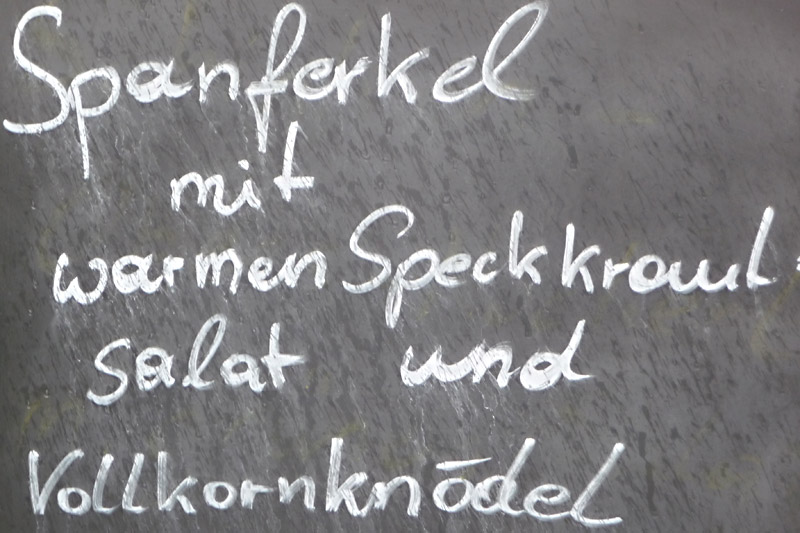 Spanferkel
mit
warmen Speckkraut-
salat und
Vollkornknödel